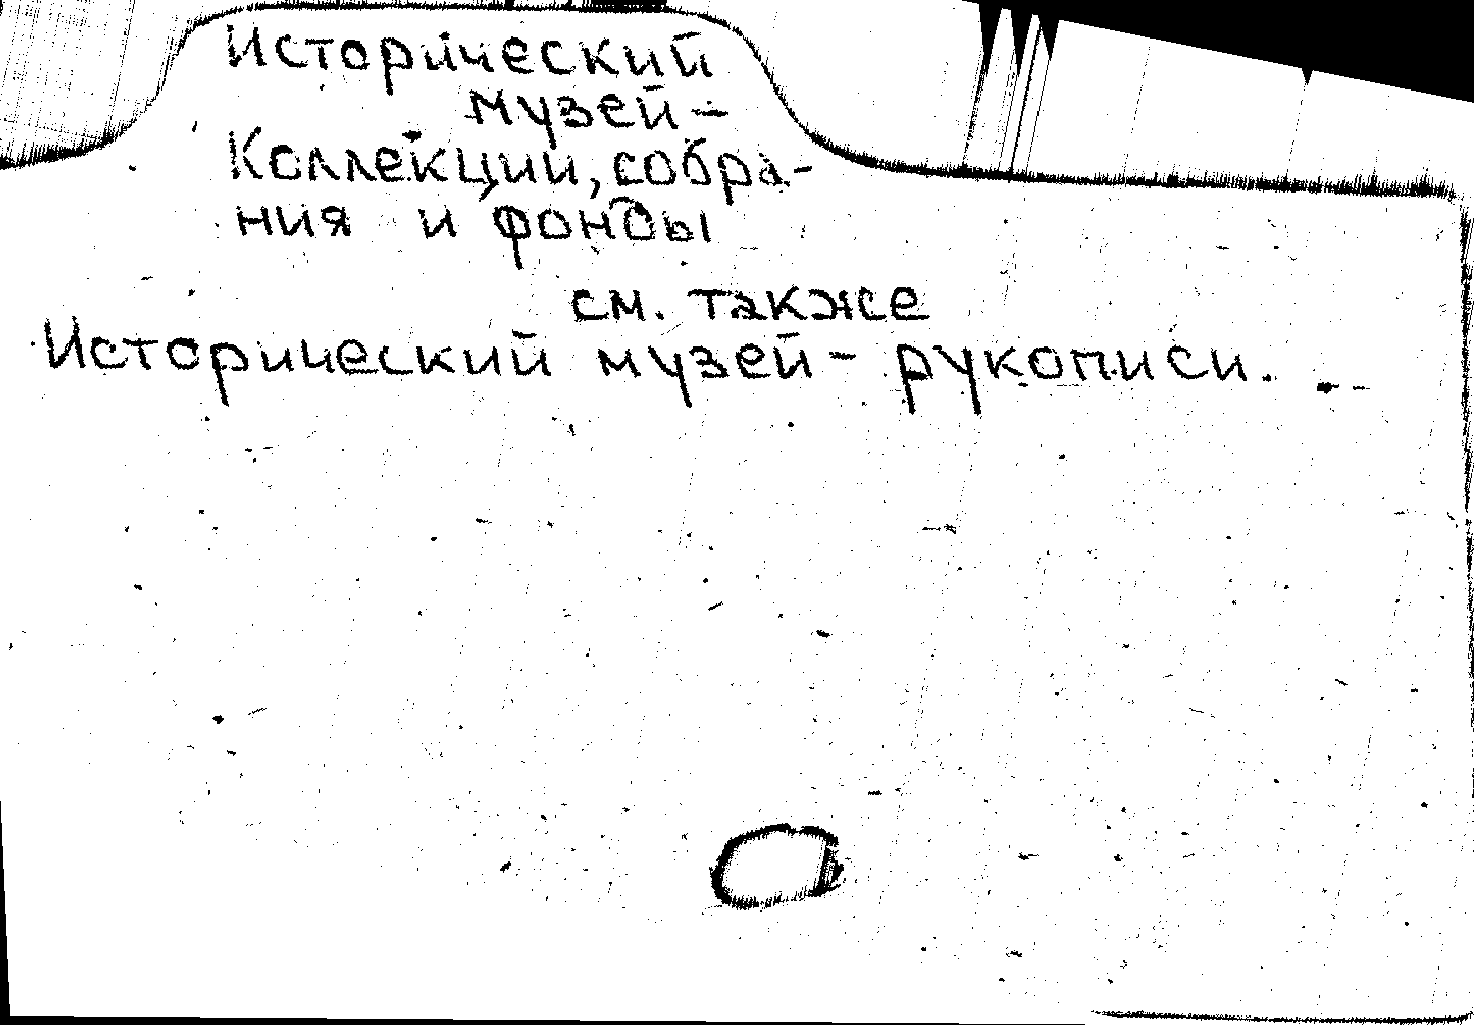 Исторический
музей-
Коллекции, собра-
ния и фонды
см. также
Исторический музей - рукописи.